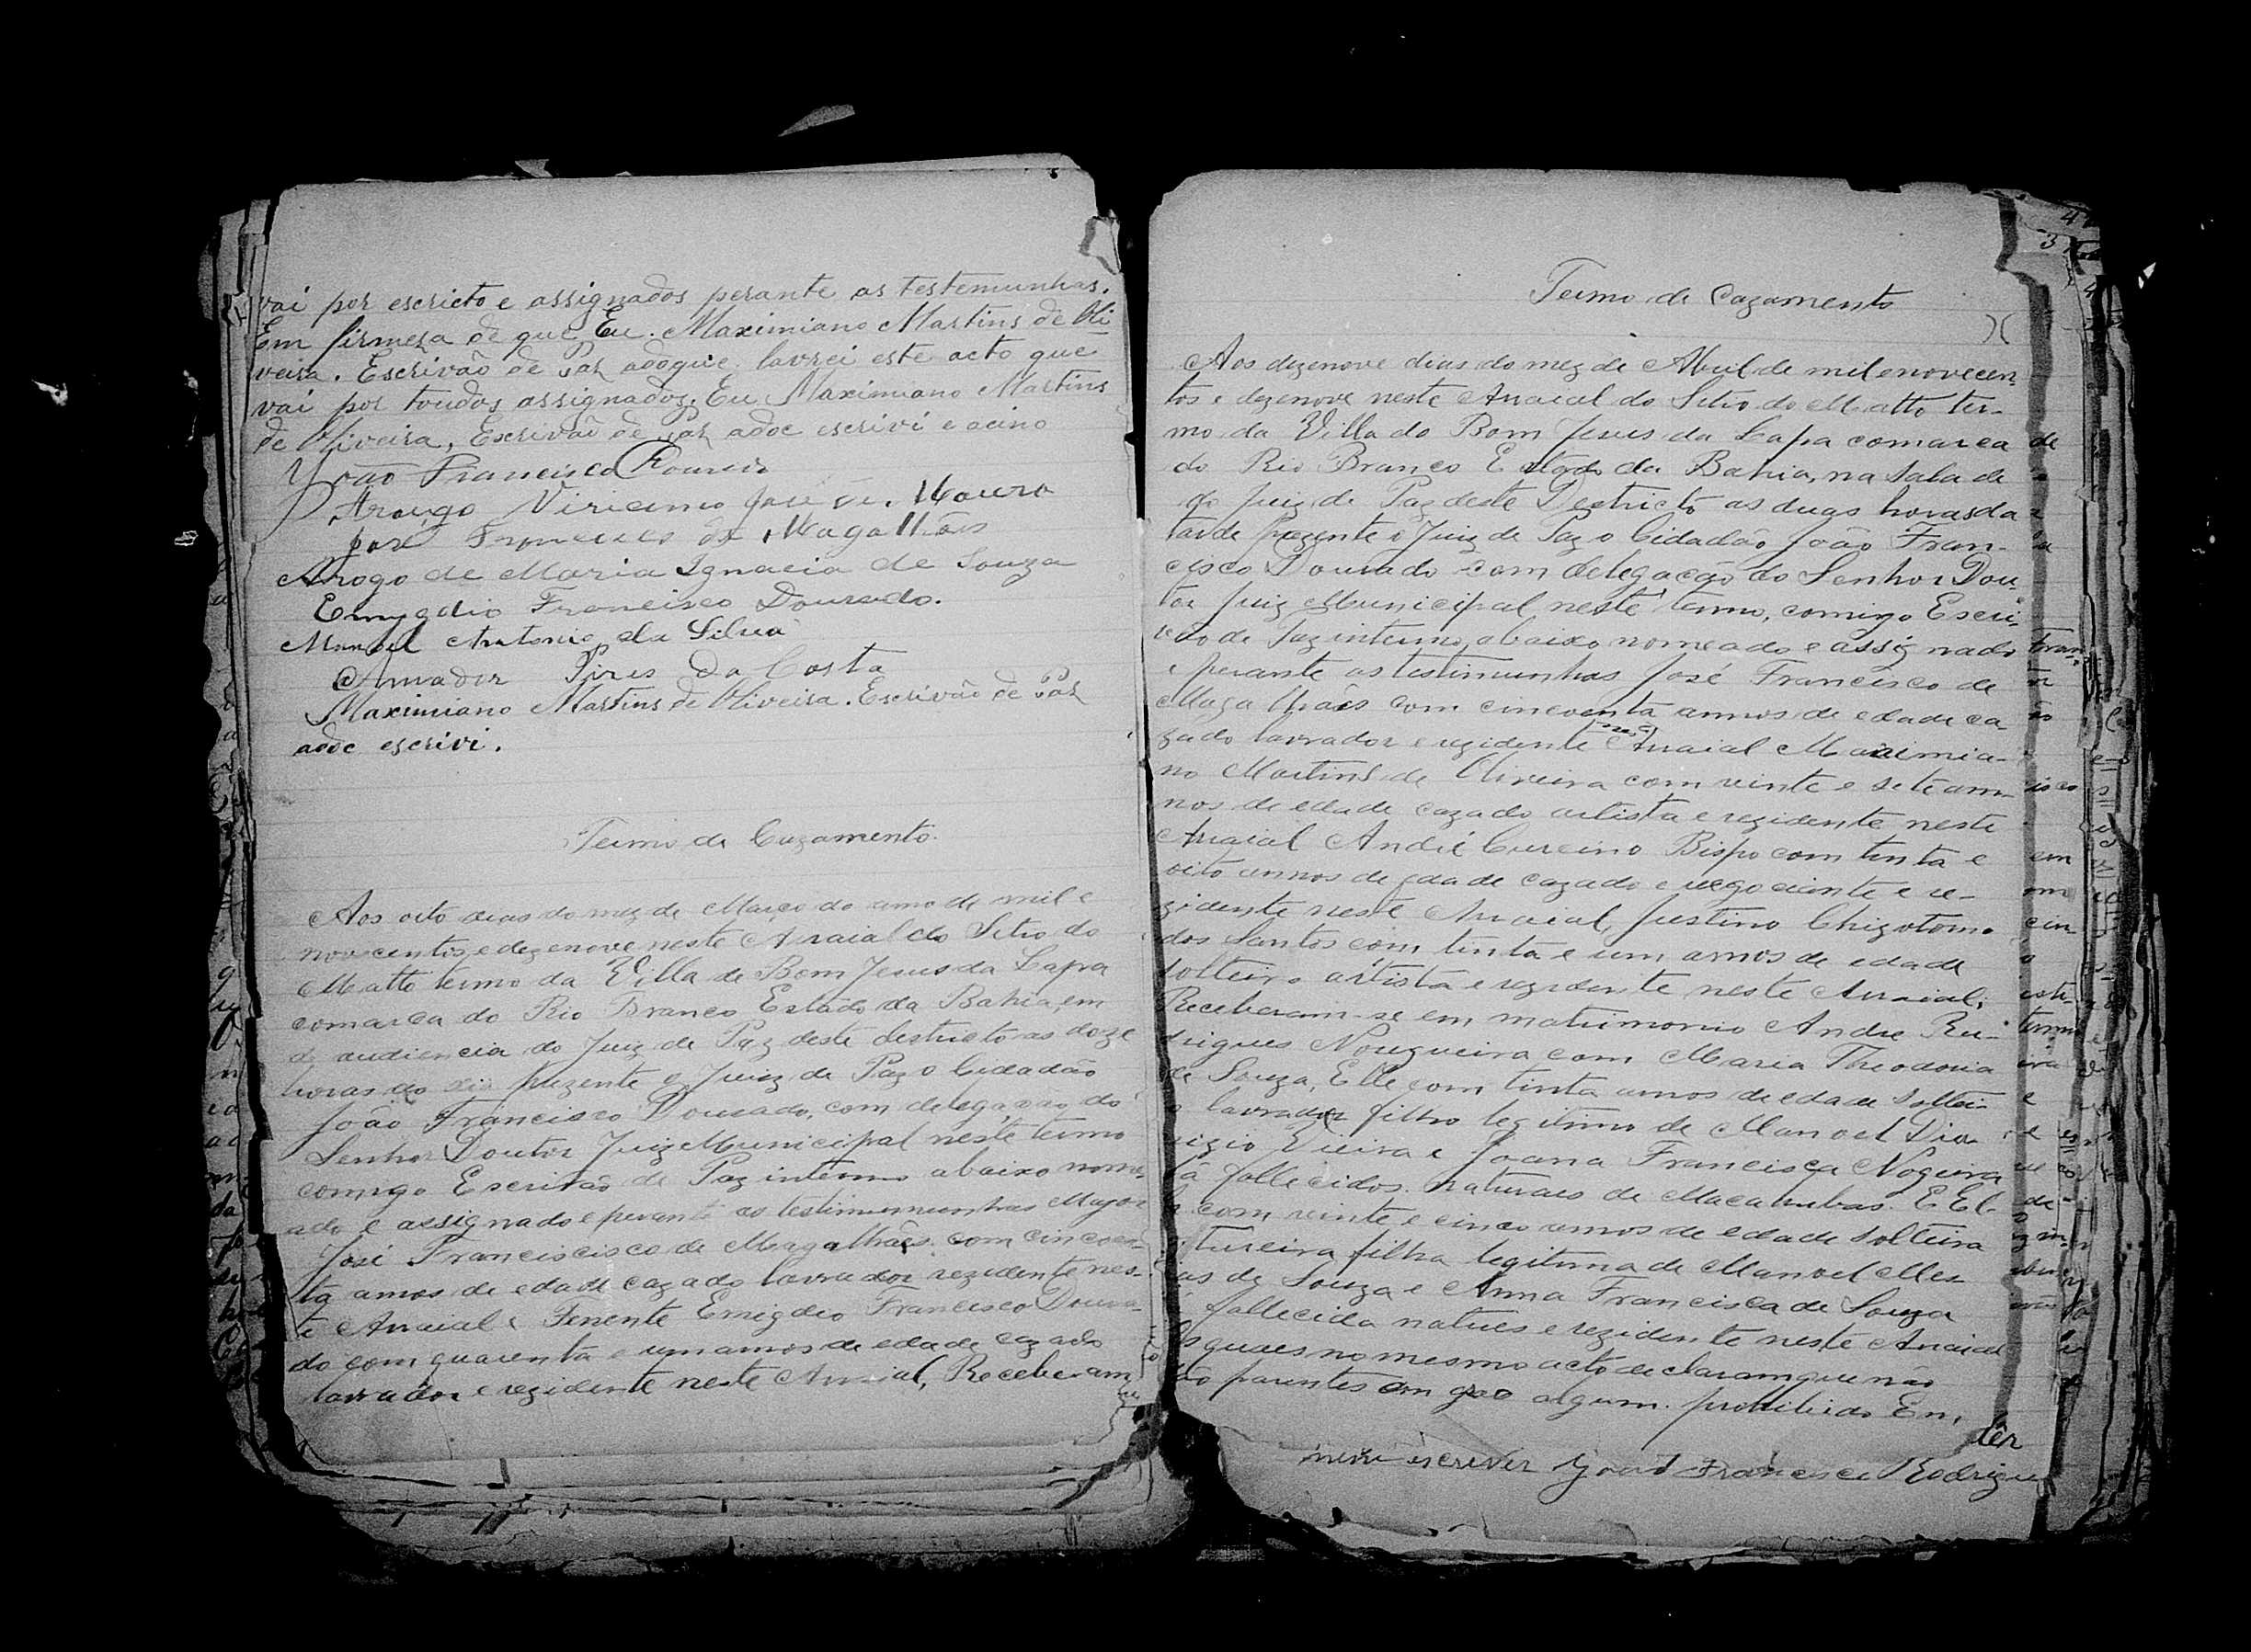 vai por escricto e assignados perante as testemunhas.
Em firmesa de que Eu. Maximiano Martins de Oli
veira. Escrivão de Paz adoque lavrei este acto que
vai por toudos assignados. Eu Maximiano Martins
de Oliveira, Escrivão de Paz adoc escrivi e acino
João Francisco
Arougo Viriccimo José de Moura
José Francisco de Magalhães
Arogo de Maria Ignacia de Souza
Emygdio Francisco Dourado.
Manoel Antonio da Silva
Amador Pires da Costa
Maximiano Martins de Oliveira. Escrivão de Paz
adoc escrivi.
Termo de Cazamento.
Aos oito dias do mez de Março do anno de mil e
novecentos e dezenove neste Arraial do Sitio do
Matto termo da Villa de Bom Jesus da Lapa
comarca do Rio Branco Estado da Bahia, em
d audiencia do Juiz de Paz deste destricto as doze
horas do dia prezente o Juiz de Paz o Cidadão
João Francisco Dourado, com delegação do
Senhor Doutor Juiz Municipal neste termo
comigo Escrivão de Paz interino abaixo nome-
ado e assignado e perante as testimumunhas Major
José Franciscisco de Magalhães com cincoen-
ta annos de edade cazado lavrador rezidente nes-
te Arraial e Tenente Emigdio Francisco Doura-
do com quarenta e um annos de edade cazado
lavrador e rezidente neste Arraial, Receberam
Termo de Cazamento
Aos dezenove dias do mez de Abril de mil e novecen-
tos e dezenove neste Arraial do Sitio do Matto ter-
mo da Villa do Bom Jesus da Lapa comarca
do Rio Branco Estado da Bahia, na sala de
do Juiz de Paz deste Destricto as duas horas da
tarde prezente o Juiz de Paz o Cidadão João Fran-
cisco Dourado com delegação do Senhor Dou-
tor Juiz Municipal neste termo, comigo Escri-
vão de Paz interino, abaixo nomeado e assignado
e perante as testimunhas José Francisco de
Magalhães com cincoenta annos de edade ca-
zado lavrador e rezidente Arraial Maximia-
no Martins de Oliveira com vinte e sete an-
nos de edade cazado artista e rezidente neste
Arraial André Curcino Bispo com trinta e
oito annos de edade cazado e negociante e re-
zidente neste Arraial, Justino Chizotomo
dos Santos com trinta e um annos de edade
solteiro artista e rezidente neste Arraial,
Receberam-se em matrimonio Andre Ru-
drigues Nougueira com Maria Theodoria
de Souza, Elle com trinta annos de edade soltei-
o lavrador filho legitimo de Manoel Dio
nizio Vieira e Joana Francisca Nogueira
já fallecidos naturaes de Macahubas. E El-
la com vinte e cinco annos de edade solteira
costureira filha legitima de Manoel Mes
sias de Souza e Anna Francisca de Souza
já fallecida natues e rezidente neste Arraial
Os quaes no mesmo acto declaram que não
são parentes em grao algum. prohibido En,
ter
escriver Francisco Rodrigues